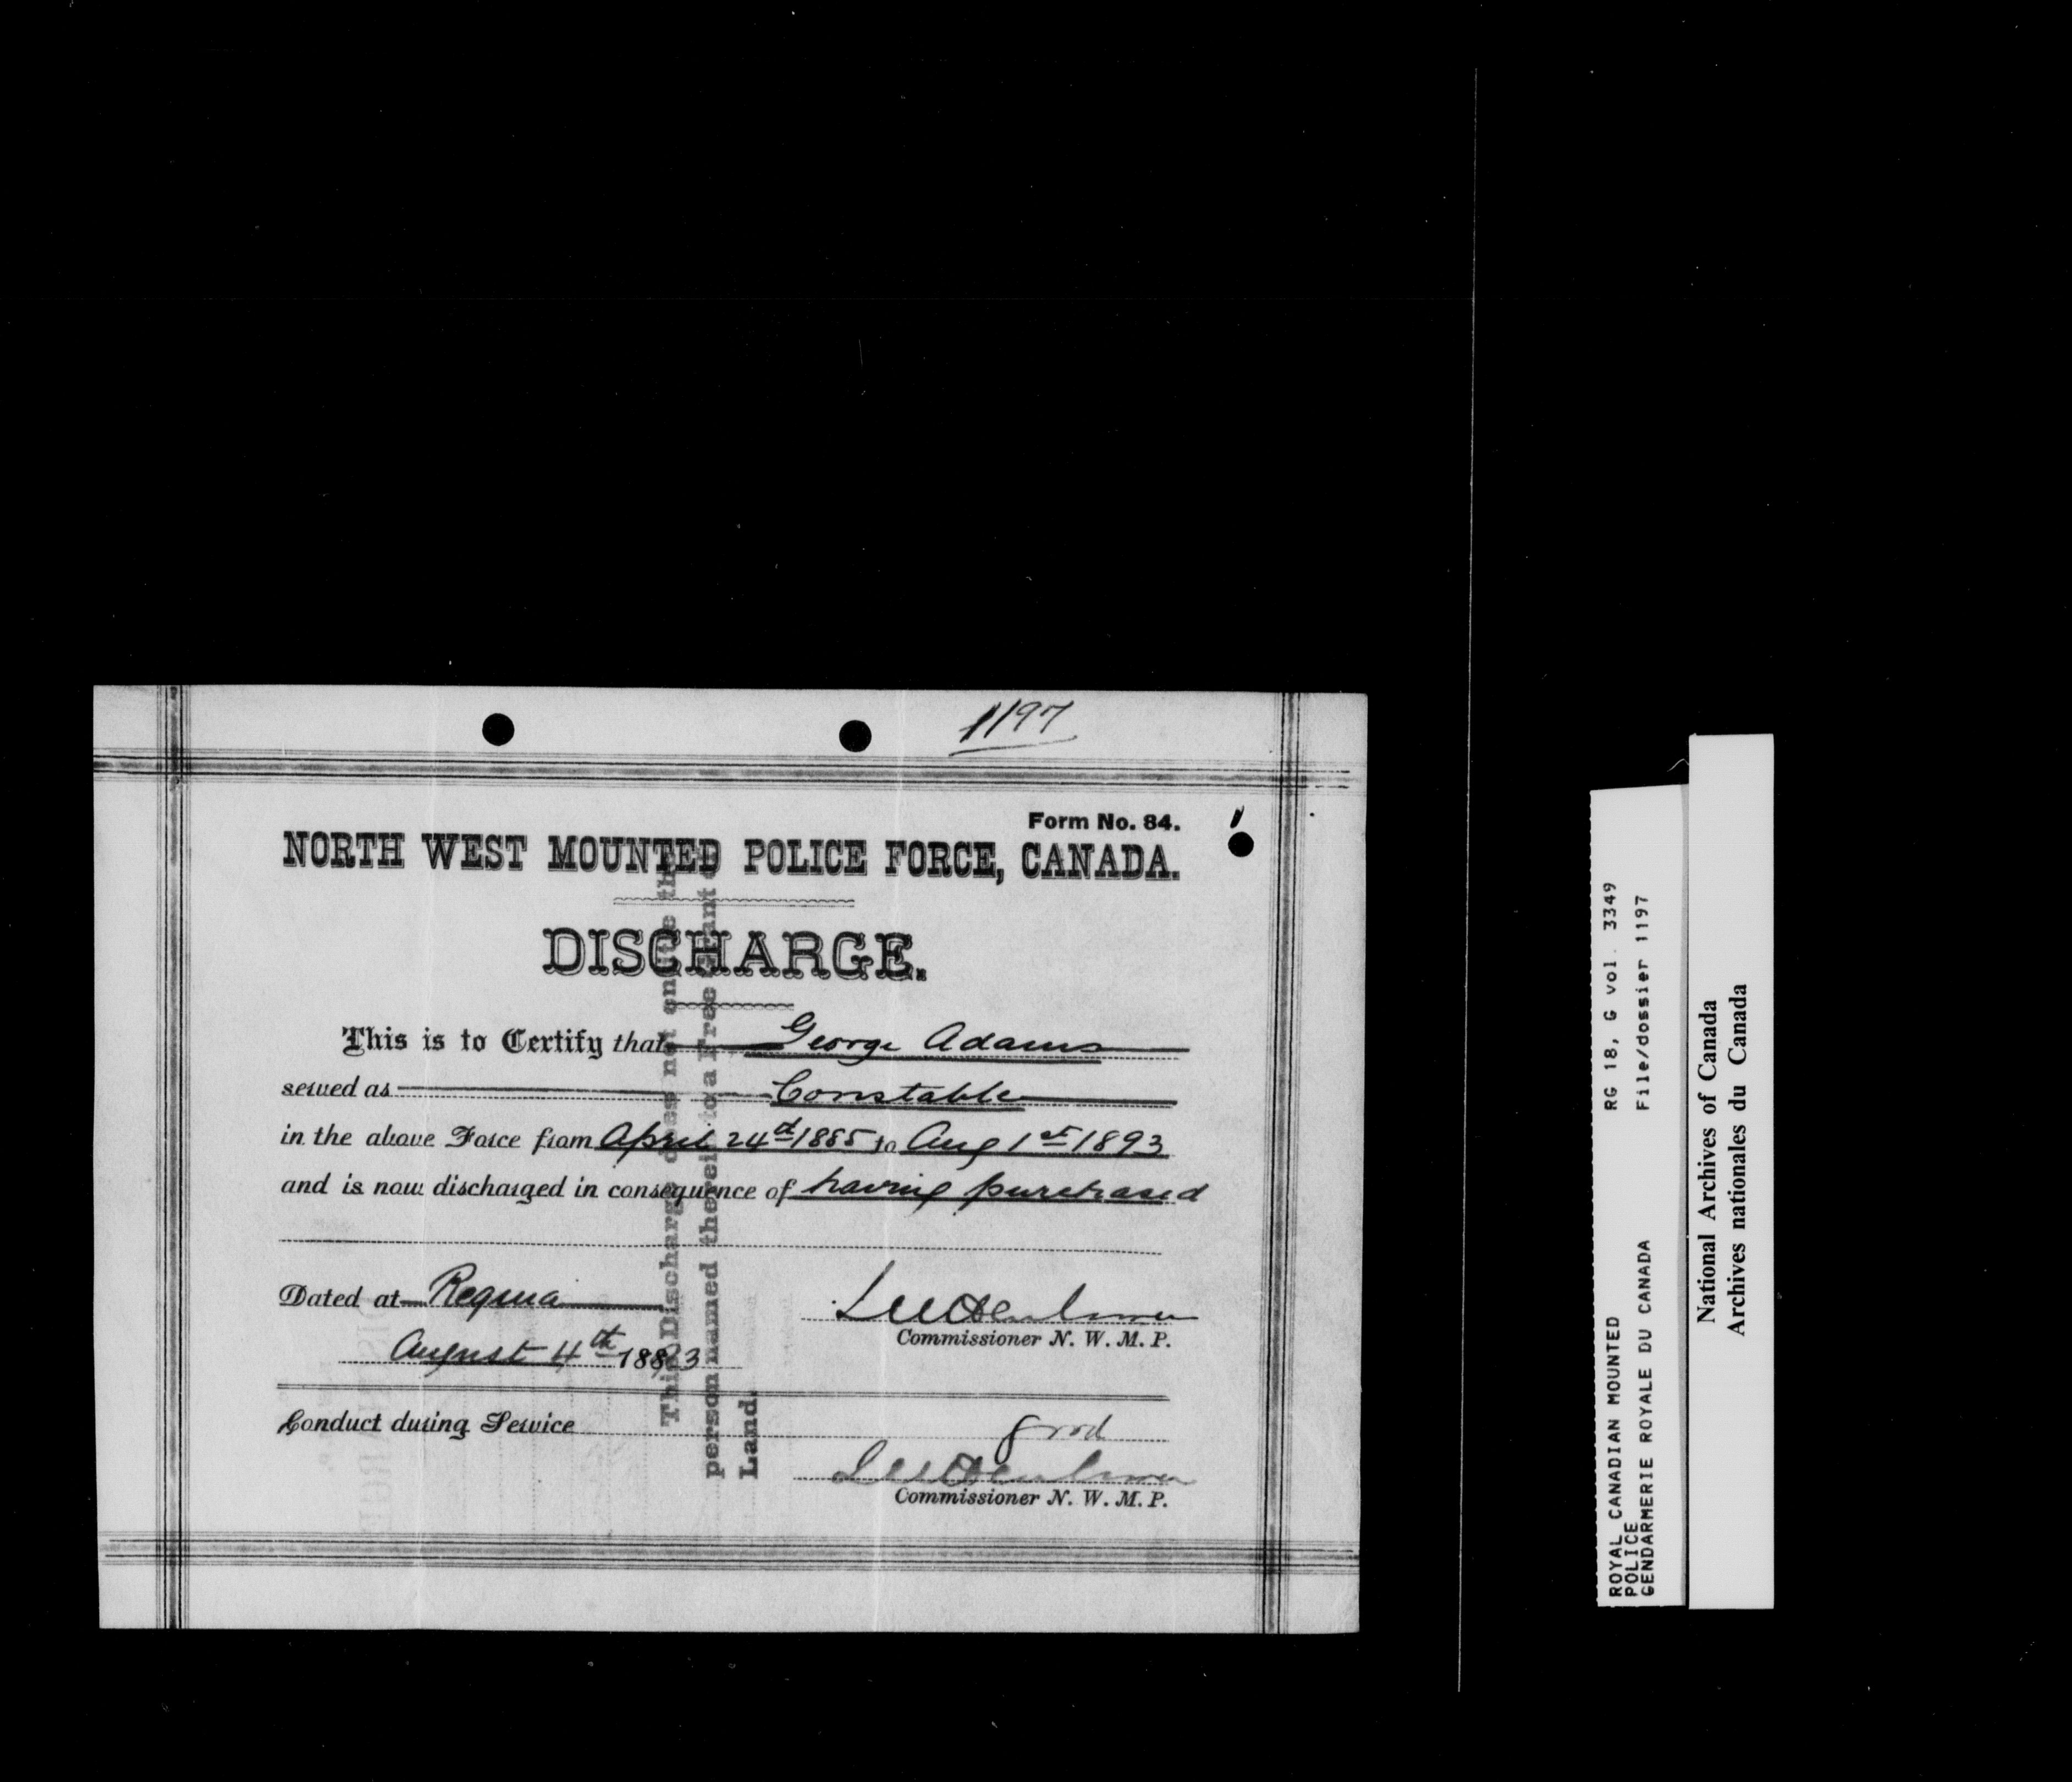 1197
Form No. 84.
NORTH WEST MOUNTED POLICE FORCE, CANADA.
DISCHARGE.
This is to Certify that George Adams
served as Constable
in the above Force from April 24th 1885 to Aug 1st 1893
and is now discharged in consequence of having purchased
Dated at Regina
August 4th 1893
Commissioner N. W. M. P.
Conduct during Service good
Commissioner N. W. M. P.
This Discharge does not entitle the
person named therein to a Free Grant of
Land.
ROYAL CANADIAN MOUNTED RG 18, G vol. 3349
POLICE
GENDARMERIE ROYALE DU CANADA File/dossier 1197
National Archives of Canada
Archives nationales du Canada